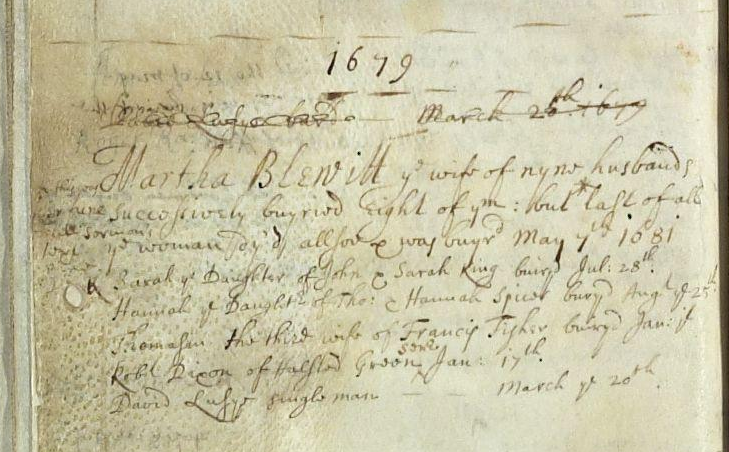 1679
March 26th 1679
Martha Blewitt ye wife of nyne husbands
successively buryed Eight of ym : but last of all
ye woman dy'd allsoe & was buryd May 7th 1681
Sarah ye Daughter of John & Sarah King buryd Jul: 28th.
Hannah ye Daughtr of Tho: & Hannah Spicer buryd Augt ye 25th
Thomasin the third wife of Francis Fisher buryd Jan: ye
Robt Dixon of Halsted Green senr. Jan: 17th.
David Lusye singleman — — March ye 20th.